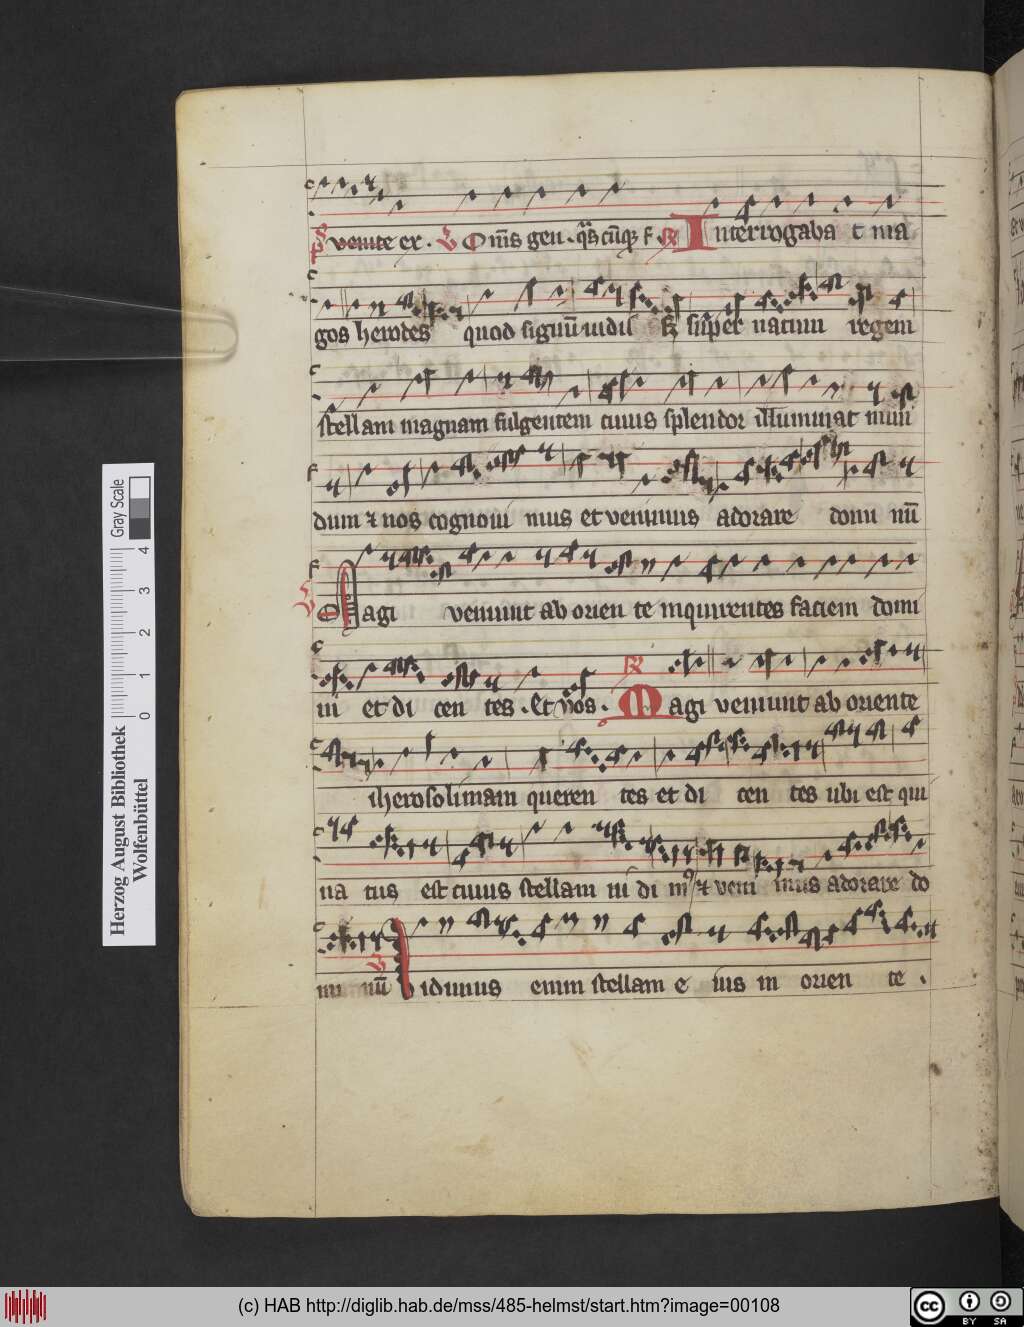 venite ex. V Om̄s gen. R Interrogaba t ma
gos herodes quod signū uidis super natum regem
stellam magnam fulgentem cuius splendor illuminat mun
dum ⁊ nos cognoui mus et venimus adorare domi nū
V Magi veniunt ab orien te inquirentes faciem domi
ni et di cen tes. Et nos. R Magi veniunt ab oriente
iherosolimam queren tes et di cen tes ubi est qui
na tus est cuius stellam ui di mꝰ ⁊ veni mus adorare do
mi nū V Vidimus enim stellam e ius in orien te.
Gray Scale
0 1 2 3 4
Herzog August Bibliothek
Wolfenbüttel
(c) HAB http://diglib.hab.de/mss/485-helmst/start.htm?image=00108
cc BY SA